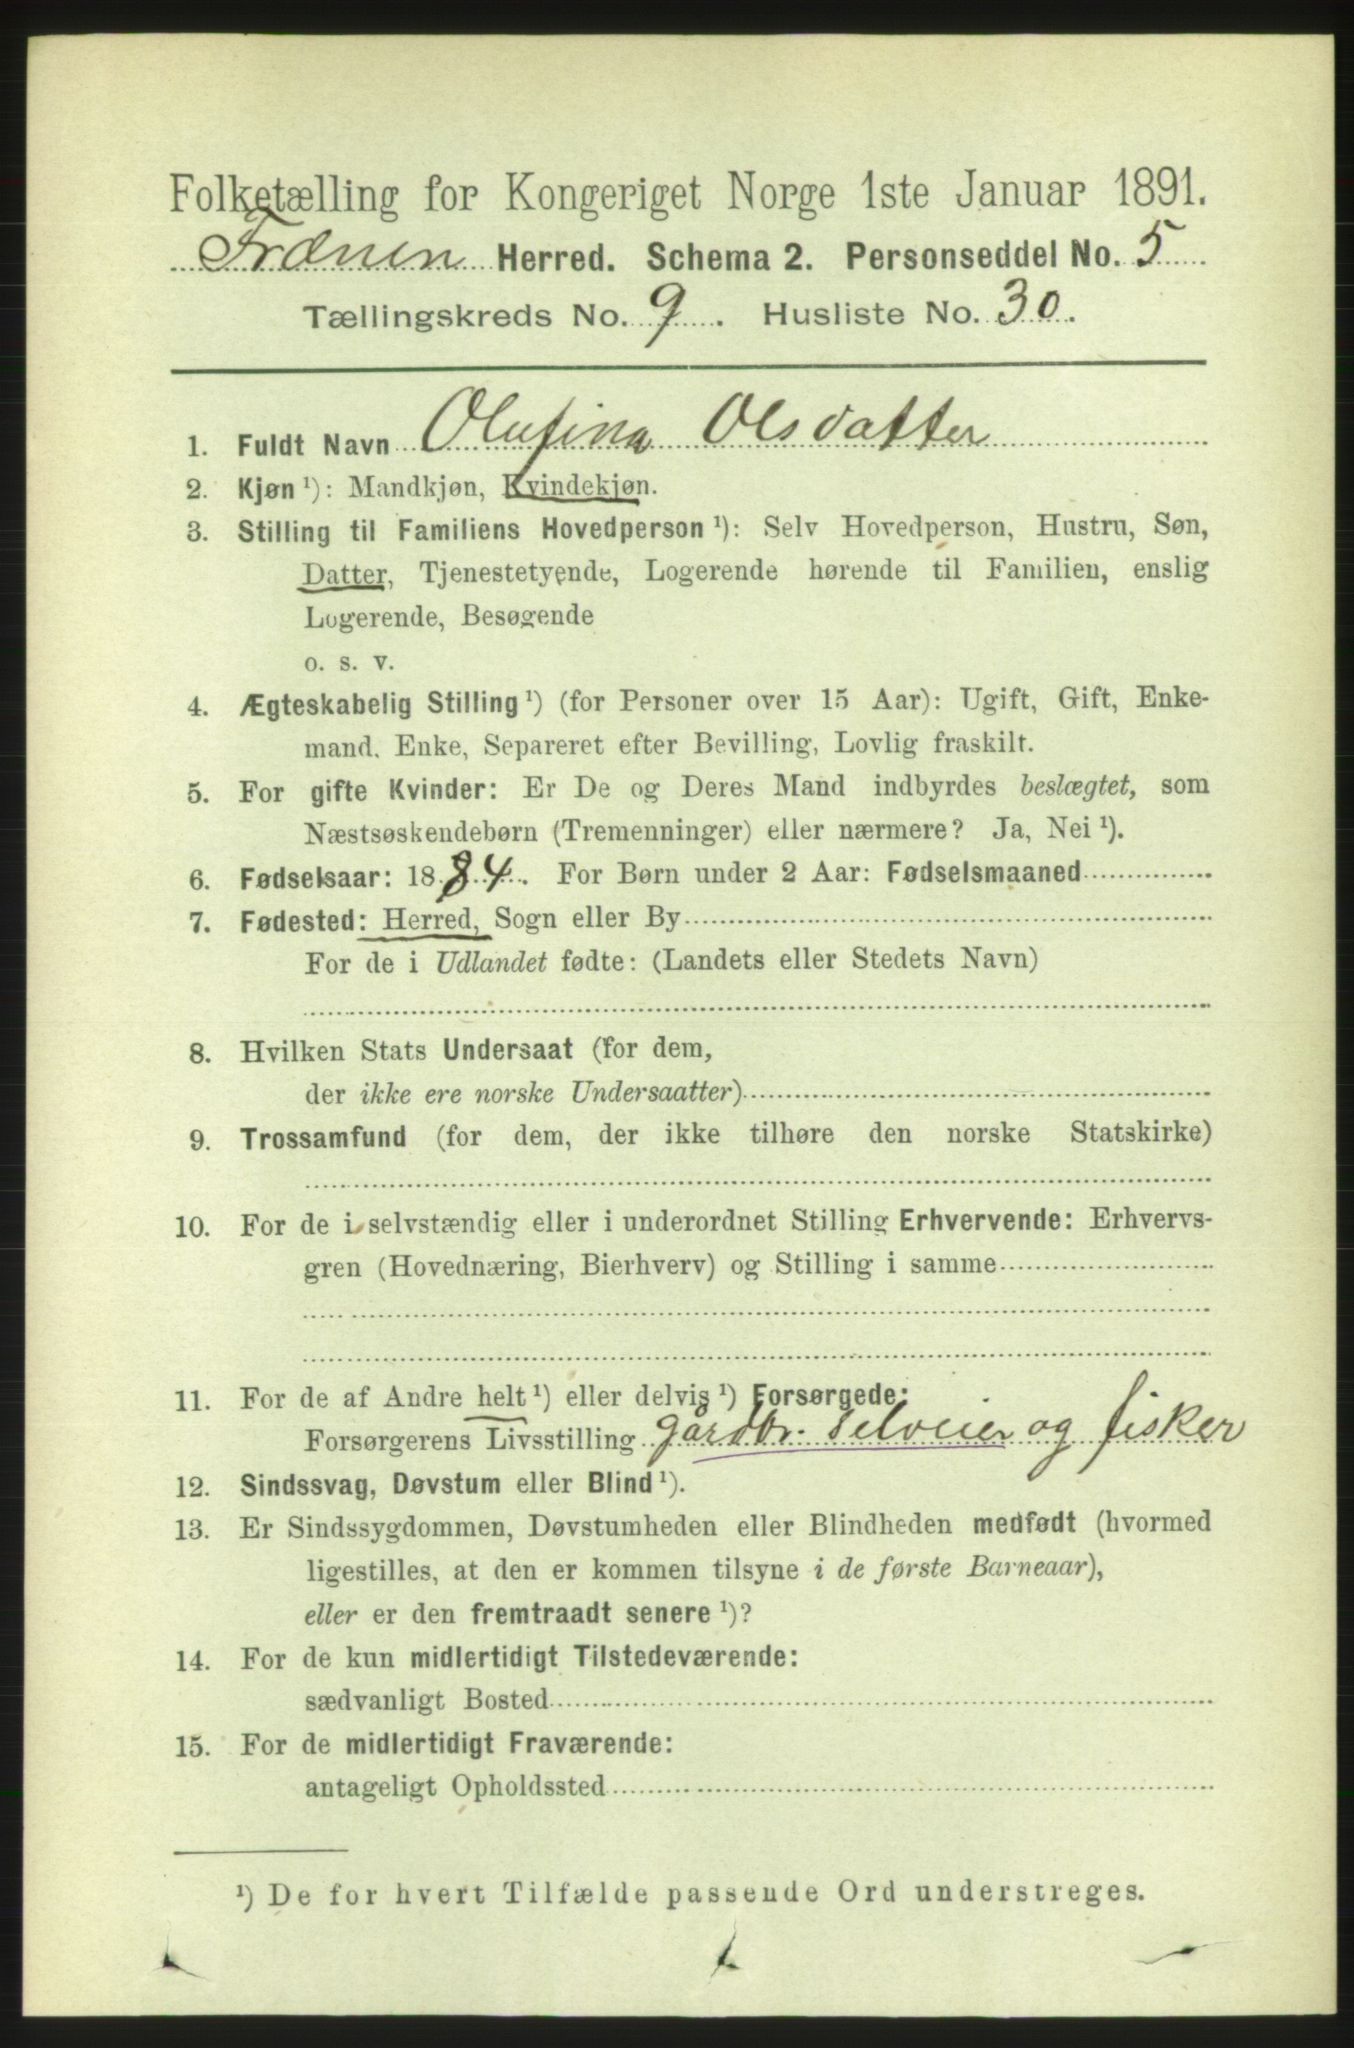 Folketælling for Kongeriget Norge 1ste Januar 1891.
Frænen Herred. Schema 2. Personseddel No. 5
Tællingskreds No. 9. Husliste No. 30.
1. Fuldt Navn Olufina Olsdatter
2. Kjøn ¹): Mandkjøn, Kvindekjøn.
3. Stilling til Familiens Hovedperson ¹): Selv Hovedperson, Hustru, Søn,
Datter, Tjenestetyende, Logerende hørende til Familien, enslig
Logerende, Besøgende
o. s. v.
4. Ægteskabelig Stilling ¹) (for Personer over 15 Aar): Ugift, Gift, Enke-
mand, Enke, Separeret efter Bevilling, Lovlig fraskilt.
5. For gifte Kvinder: Er De og Deres Mand indbyrdes beslægtet, som
Næstsøskendebørn (Tremenninger) eller nærmere? Ja, Nei ¹).
6. Fødselsaar: 1884. For Børn under 2 Aar: Fødselsmaaned
7. Fødested: Herred, Sogn eller By
For de i Udlandet fødte: (Landets eller Stedets Navn)
8. Hvilken Stats Undersaat (for dem,
der ikke ere norske Undersaatter)
9. Trossamfund (for dem, der ikke tilhøre den norske Statskirke)
10. For de i selvstændig eller i underordnet Stilling Erhvervende: Erhvervs-
gren (Hovednæring, Bierhverv) og Stilling i samme
11. For de af Andre helt ¹) eller delvis ¹) Forsørgede:
Forsørgerens Livsstilling gårdbr. selveier og fisker
12. Sindssvag, Døvstum eller Blind ¹).
13. Er Sindssygdommen, Døvstumheden eller Blindheden medfødt (hvormed
ligestilles, at den er kommen tilsyne i de første Barneaar),
eller er den fremtraadt senere ¹)?
14. For de kun midlertidigt Tilstedeværende:
sædvanligt Bosted
15. For de midlertidigt Fraværende:
antageligt Opholdssted
¹) De for hvert Tilfælde passende Ord understreges.